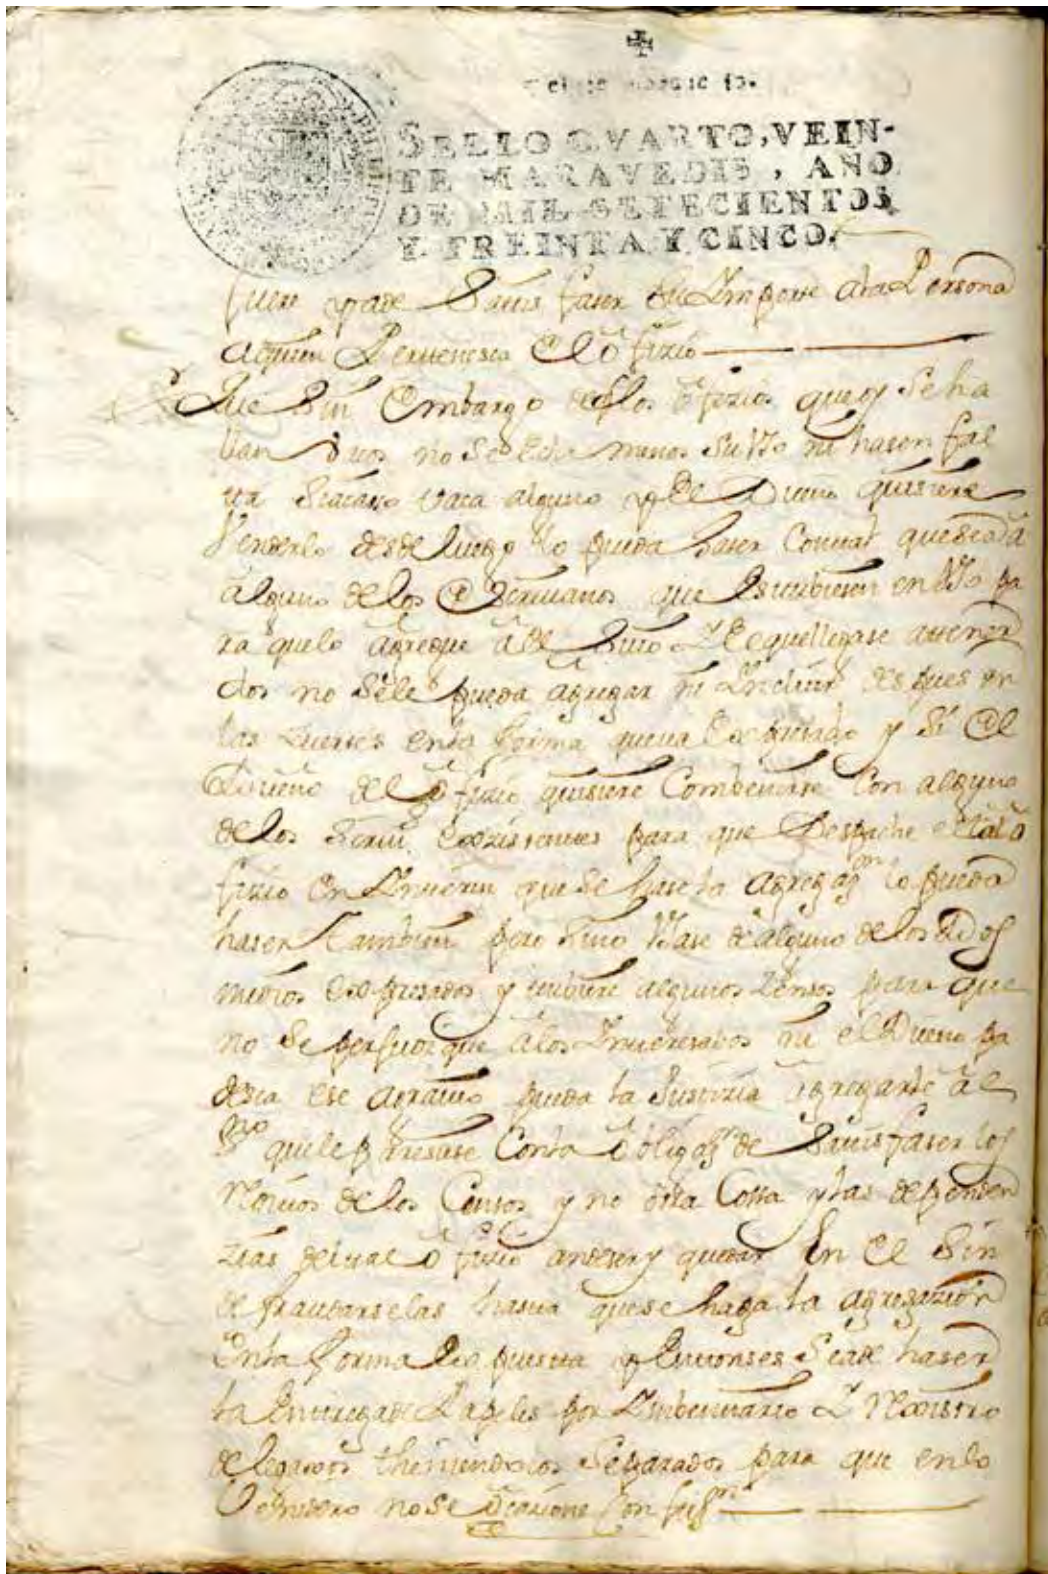 SELLO QVARTO, VEIN-
TE MARAVEDIS, AÑO
DE MIL SETECIENTOS
Y TREINTA Y CINCO.
fuere y ade Satisfaser su Ymporte ala Persona
aquien Pertenesca el ofizio
Que Sin Embargo de los ofizios que oy Se ha
llan no Se heche menos Su Vso ni hasen fal
ta Si acaso Vaca alguno y el Dueño quisiere
Venderlo desde luego lo pueda haser Con tal que sea a
alguno de los Essermanos que Estubiesen en Vso pa
ra quelo agregue a el Suio
dos no Sele pueda agregar ni Yncluir despues en
las Suertes enla forma que va Expresado y Si el
Dueño de el ofizio quisiere Combenirse Con alguno
de los Scriu. Existentes para que Despache el tal o
fizio en Ynterin que Se hase la agregazon lo pueda
haser Tambien pero Sino Vsase de alguno de los Dos
medios Expresados y tubiere algunos Zensos para que
no Se perjudique alos Ynteresados ni el Dueño pa
desca ese agrauio pueda la Justizia agregarle a el
no que le paresiese Conla obligaz de Satisfaser los
Reditos de los Censos y no otra Cossa y las dependen
zias del tal ofizio an deser y quedar En el Sin
defraudarselas hasta que se haga la agregazion
Enla forma Dispuesta y Entonses Seade haser
la Entrega de Papeles por Ymbentario Y Rexistro
de legajos theniendolos Separados para que enlo
Venidero no Se ocazione Confuzn